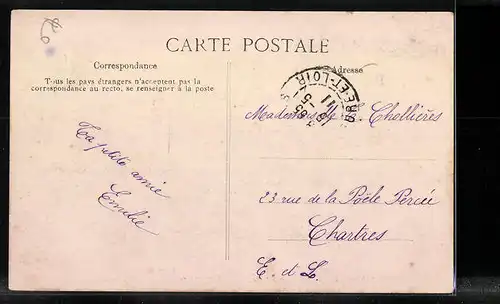 CARTE POSTALE
Correspondance
Tous les pays étrangers n'acceptent pas la
correspondance au recto, se renseigner à la poste
Ta petite amie
Emilie
Adresse
EURE-ET-LOIR
Mademoiselle Chellières
23 rue de la Poële Percée
Chartres
E. et L.